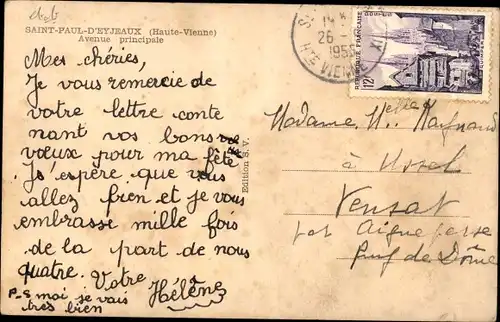 SAINT-PAUL-D'EYJEAUX (Haute-Vienne)
Avenue principale
Mes chéries,
Je vous remercie de
votre lettre conte
nant vos bons
vœux pour ma fête
J'espère que vous
allez bien et je vous
embrasse mille fois
de la part de nous
quatre. Votre
Hélène
P-S moi je vais
très bien
Edition S. V.
14
26
1955
VIENNE
REPUBLIQUE FRANÇAISE
12F
QUIMPER
Madame, Melle Raynaud
à Ussel
Vensat
par Aigueperse
Puy de Dôme